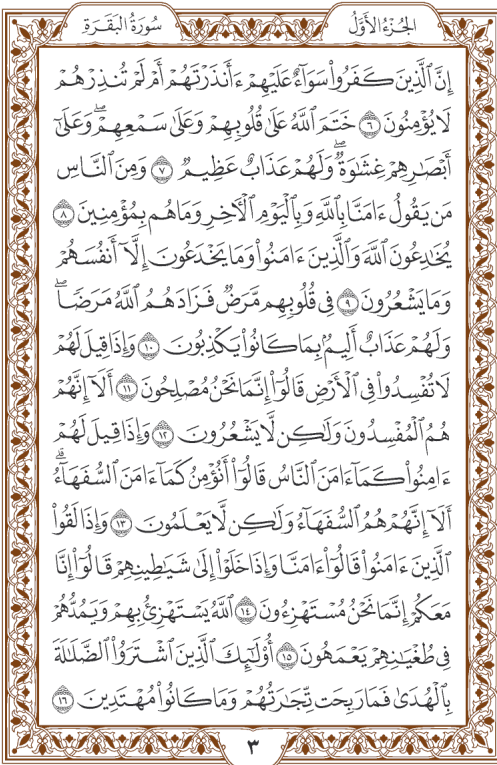 الجُزْءُ الأَوَّلُ
سُورَةُ البَقَرَةِ
إِنَّ ٱلَّذِينَ كَفَرُوا۟ سَوَآءٌ عَلَيْهِمْ ءَأَنذَرْتَهُمْ أَمْ لَمْ تُنذِرْهُمْ
لَا يُؤْمِنُونَ ٦ خَتَمَ ٱللَّهُ عَلَىٰ قُلُوبِهِمْ وَعَلَىٰ سَمْعِهِمْ ۖ وَعَلَىٰٓ
أَبْصَٰرِهِمْ غِشَٰوَةٌ ۖ وَلَهُمْ عَذَابٌ عَظِيمٌ ٧ وَمِنَ ٱلنَّاسِ
مَن يَقُولُ ءَامَنَّا بِٱللَّهِ وَبِٱلْيَوْمِ ٱلْءَاخِرِ وَمَا هُم بِمُؤْمِنِينَ ٨
يُخَٰدِعُونَ ٱللَّهَ وَٱلَّذِينَ ءَامَنُوا۟ وَمَا يَخْدَعُونَ إِلَّآ أَنفُسَهُمْ
وَمَا يَشْعُرُونَ ٩ فِى قُلُوبِهِم مَّرَضٌ فَزَادَهُمُ ٱللَّهُ مَرَضًا ۖ
وَلَهُمْ عَذَابٌ أَلِيمٌۢ بِمَا كَانُوا۟ يَكْذِبُونَ ١٠ وَإِذَا قِيلَ لَهُمْ
لَا تُفْسِدُوا۟ فِى ٱلْأَرْضِ قَالُوٓا۟ إِنَّمَا نَحْنُ مُصْلِحُونَ ١١ أَلَآ إِنَّهُمْ
هُمُ ٱلْمُفْسِدُونَ وَلَٰكِن لَّا يَشْعُرُونَ ١٢ وَإِذَا قِيلَ لَهُمْ
ءَامِنُوا۟ كَمَآ ءَامَنَ ٱلنَّاسُ قَالُوٓا۟ أَنُؤْمِنُ كَمَآ ءَامَنَ ٱلسُّفَهَآءُ ۗ
أَلَآ إِنَّهُمْ هُمُ ٱلسُّفَهَآءُ وَلَٰكِن لَّا يَعْلَمُونَ ١٣ وَإِذَا لَقُوا۟
ٱلَّذِينَ ءَامَنُوا۟ قَالُوٓا۟ ءَامَنَّا وَإِذَا خَلَوْا۟ إِلَىٰ شَيَٰطِينِهِمْ قَالُوٓا۟ إِنَّا
مَعَكُمْ إِنَّمَا نَحْنُ مُسْتَهْزِءُونَ ١٤ ٱللَّهُ يَسْتَهْزِئُ بِهِمْ وَيَمُدُّهُمْ
فِى طُغْيَٰنِهِمْ يَعْمَهُونَ ١٥ أُو۟لَٰٓئِكَ ٱلَّذِينَ ٱشْتَرَوُا۟ ٱلضَّلَٰلَةَ
بِٱلْهُدَىٰ فَمَا رَبِحَت تِّجَٰرَتُهُمْ وَمَا كَانُوا۟ مُهْتَدِينَ ١٦
٣